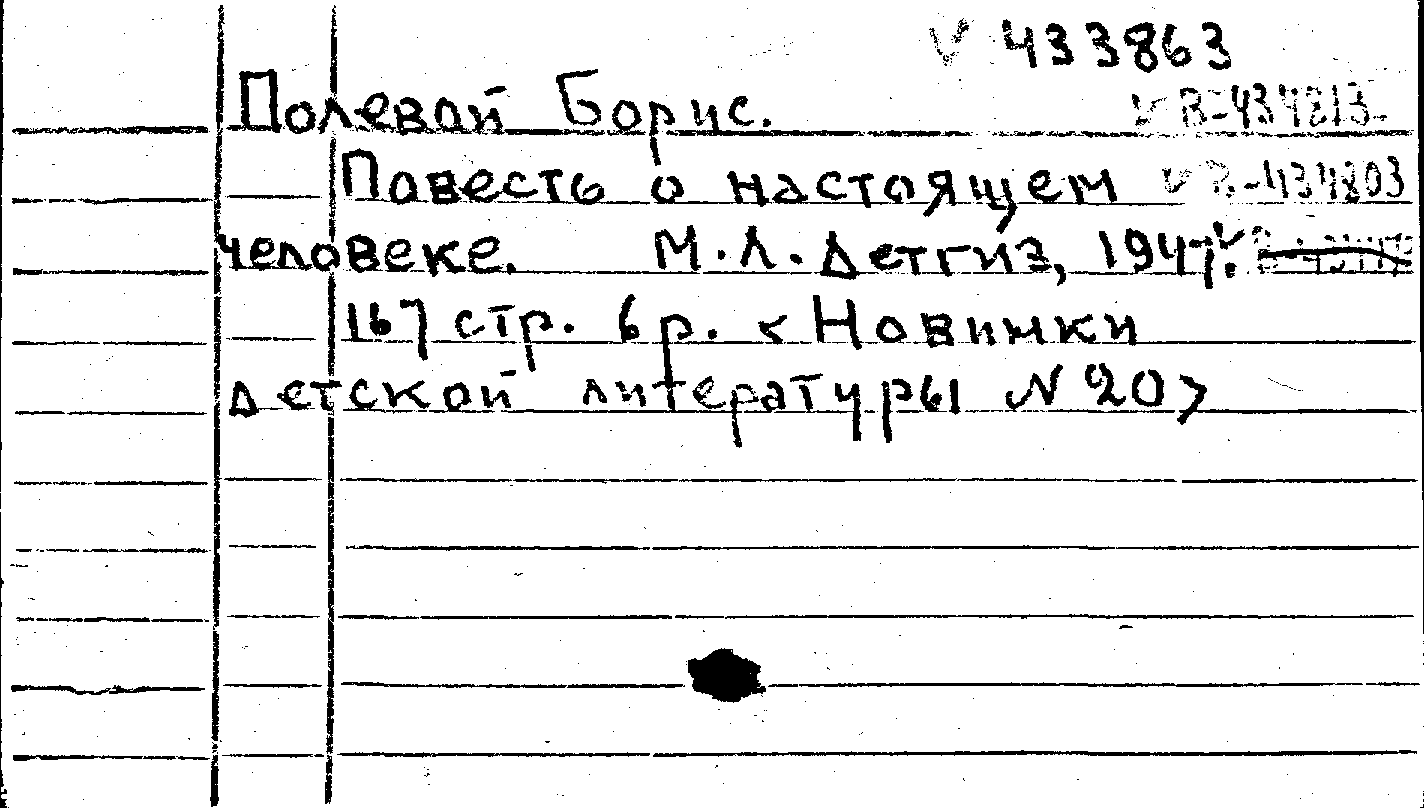 V 433863
Полевой Борис. V В-434813
Повесть о настоящем V В-434803
человеке. М.Л. Детгиз, 1947.
167 стр. 6 р. <Новинки
детской литературы N 20>